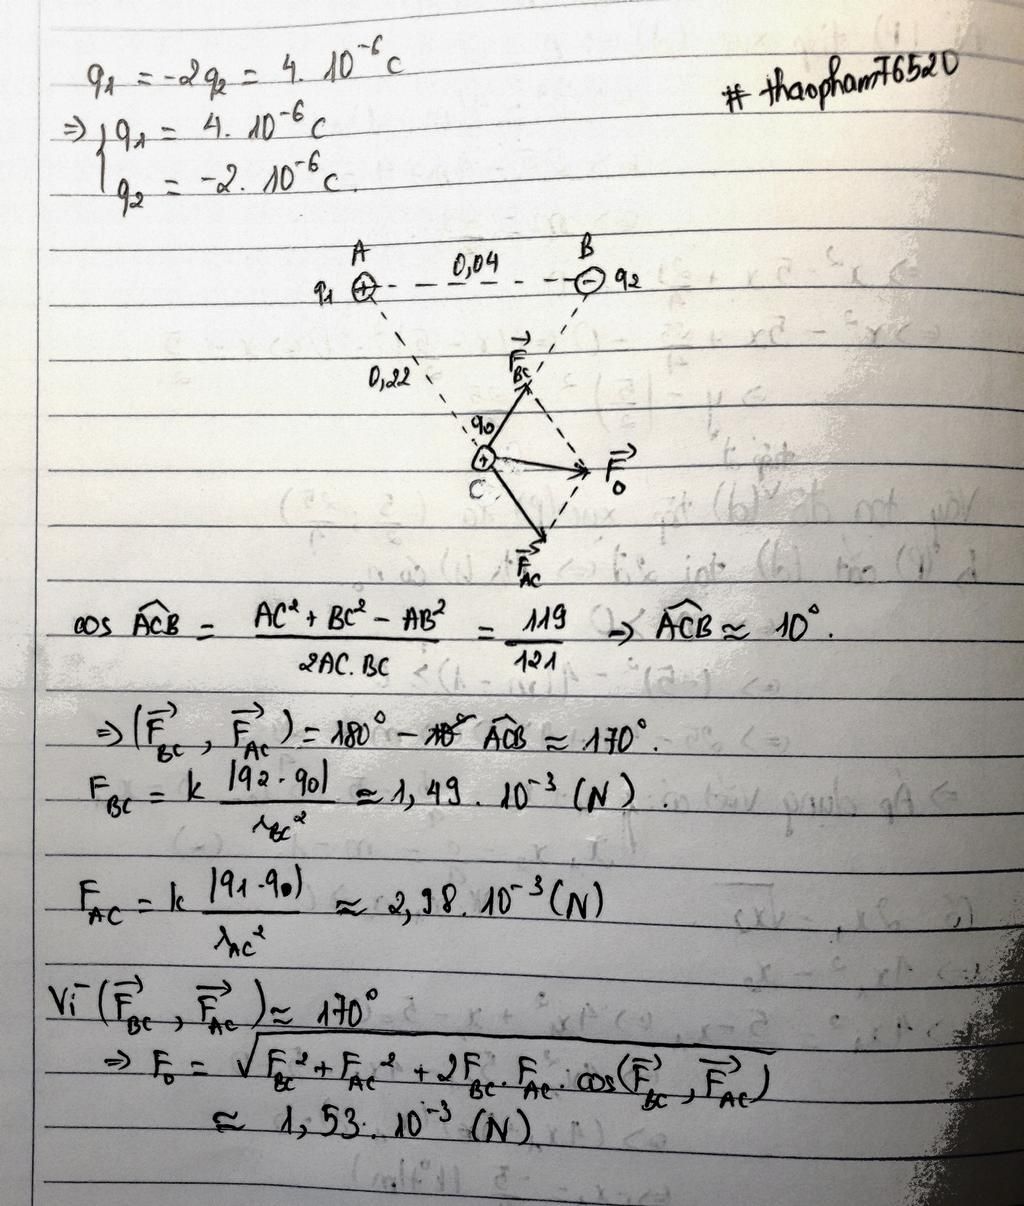 q₁ = -2q₂ = 4. 10⁻⁶ C
# thaopham76520
=> { q₁ = 4. 10⁻⁶ C
q₂ = -2. 10⁻⁶ C.
A 0,04 B
q₁ + - q₂
F⃗_BC
0,22
q₀
+ F⃗₀
C
F⃗_AC
cos ACB^ = (AC² + BC² - AB²)/(2AC.BC) = 119/121 → ACB^ ≈ 10°.
=> (F⃗_BC, F⃗_AC) = 180° - ACB^ ≈ 170°.
F_BC = k |q₂.q₀|/r_BC² ≈ 1,49. 10⁻³ (N).
F_AC = k |q₁.q₀|/r_AC² ≈ 2,98. 10⁻³ (N)
Vì (F⃗_BC, F⃗_AC) ≈ 170°
=> F₀ = √(F_BC² + F_AC² + 2F_BC.F_AC.cos(F⃗_BC, F⃗_AC))
≈ 1,53. 10⁻³ (N)